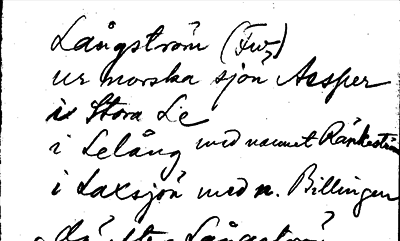 Långström (Fw.)
ur norska sjön Aspper
i Stora Le
i Lelång med namnet Ränkeström
i Laxsjön med n. Billingen
Långström